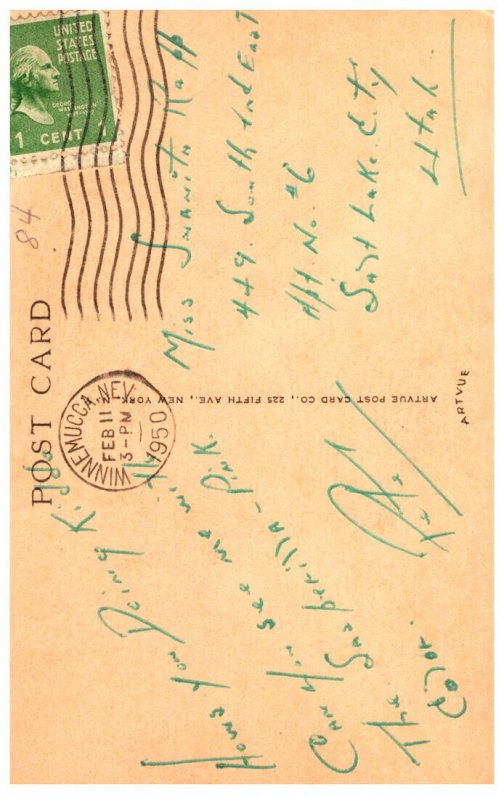 POST CARD
UNITED
STATES
POSTAGE
GEORGE
WASHINGTON
1 CENT 1
84
WINNEMUCCA, NEV.
FEB 11
3-PM
1950
Hows You Doing Kiddo
Can You see me with
The Sasperilla - Pink
Color.
Miss Juanita Rapp
449 South 2nd East
Apt No. #6
Salt Lake City
Utah
ARTVUE POST CARD CO., 225 FIFTH AVE., NEW YORK, N.Y.
ARTVUE